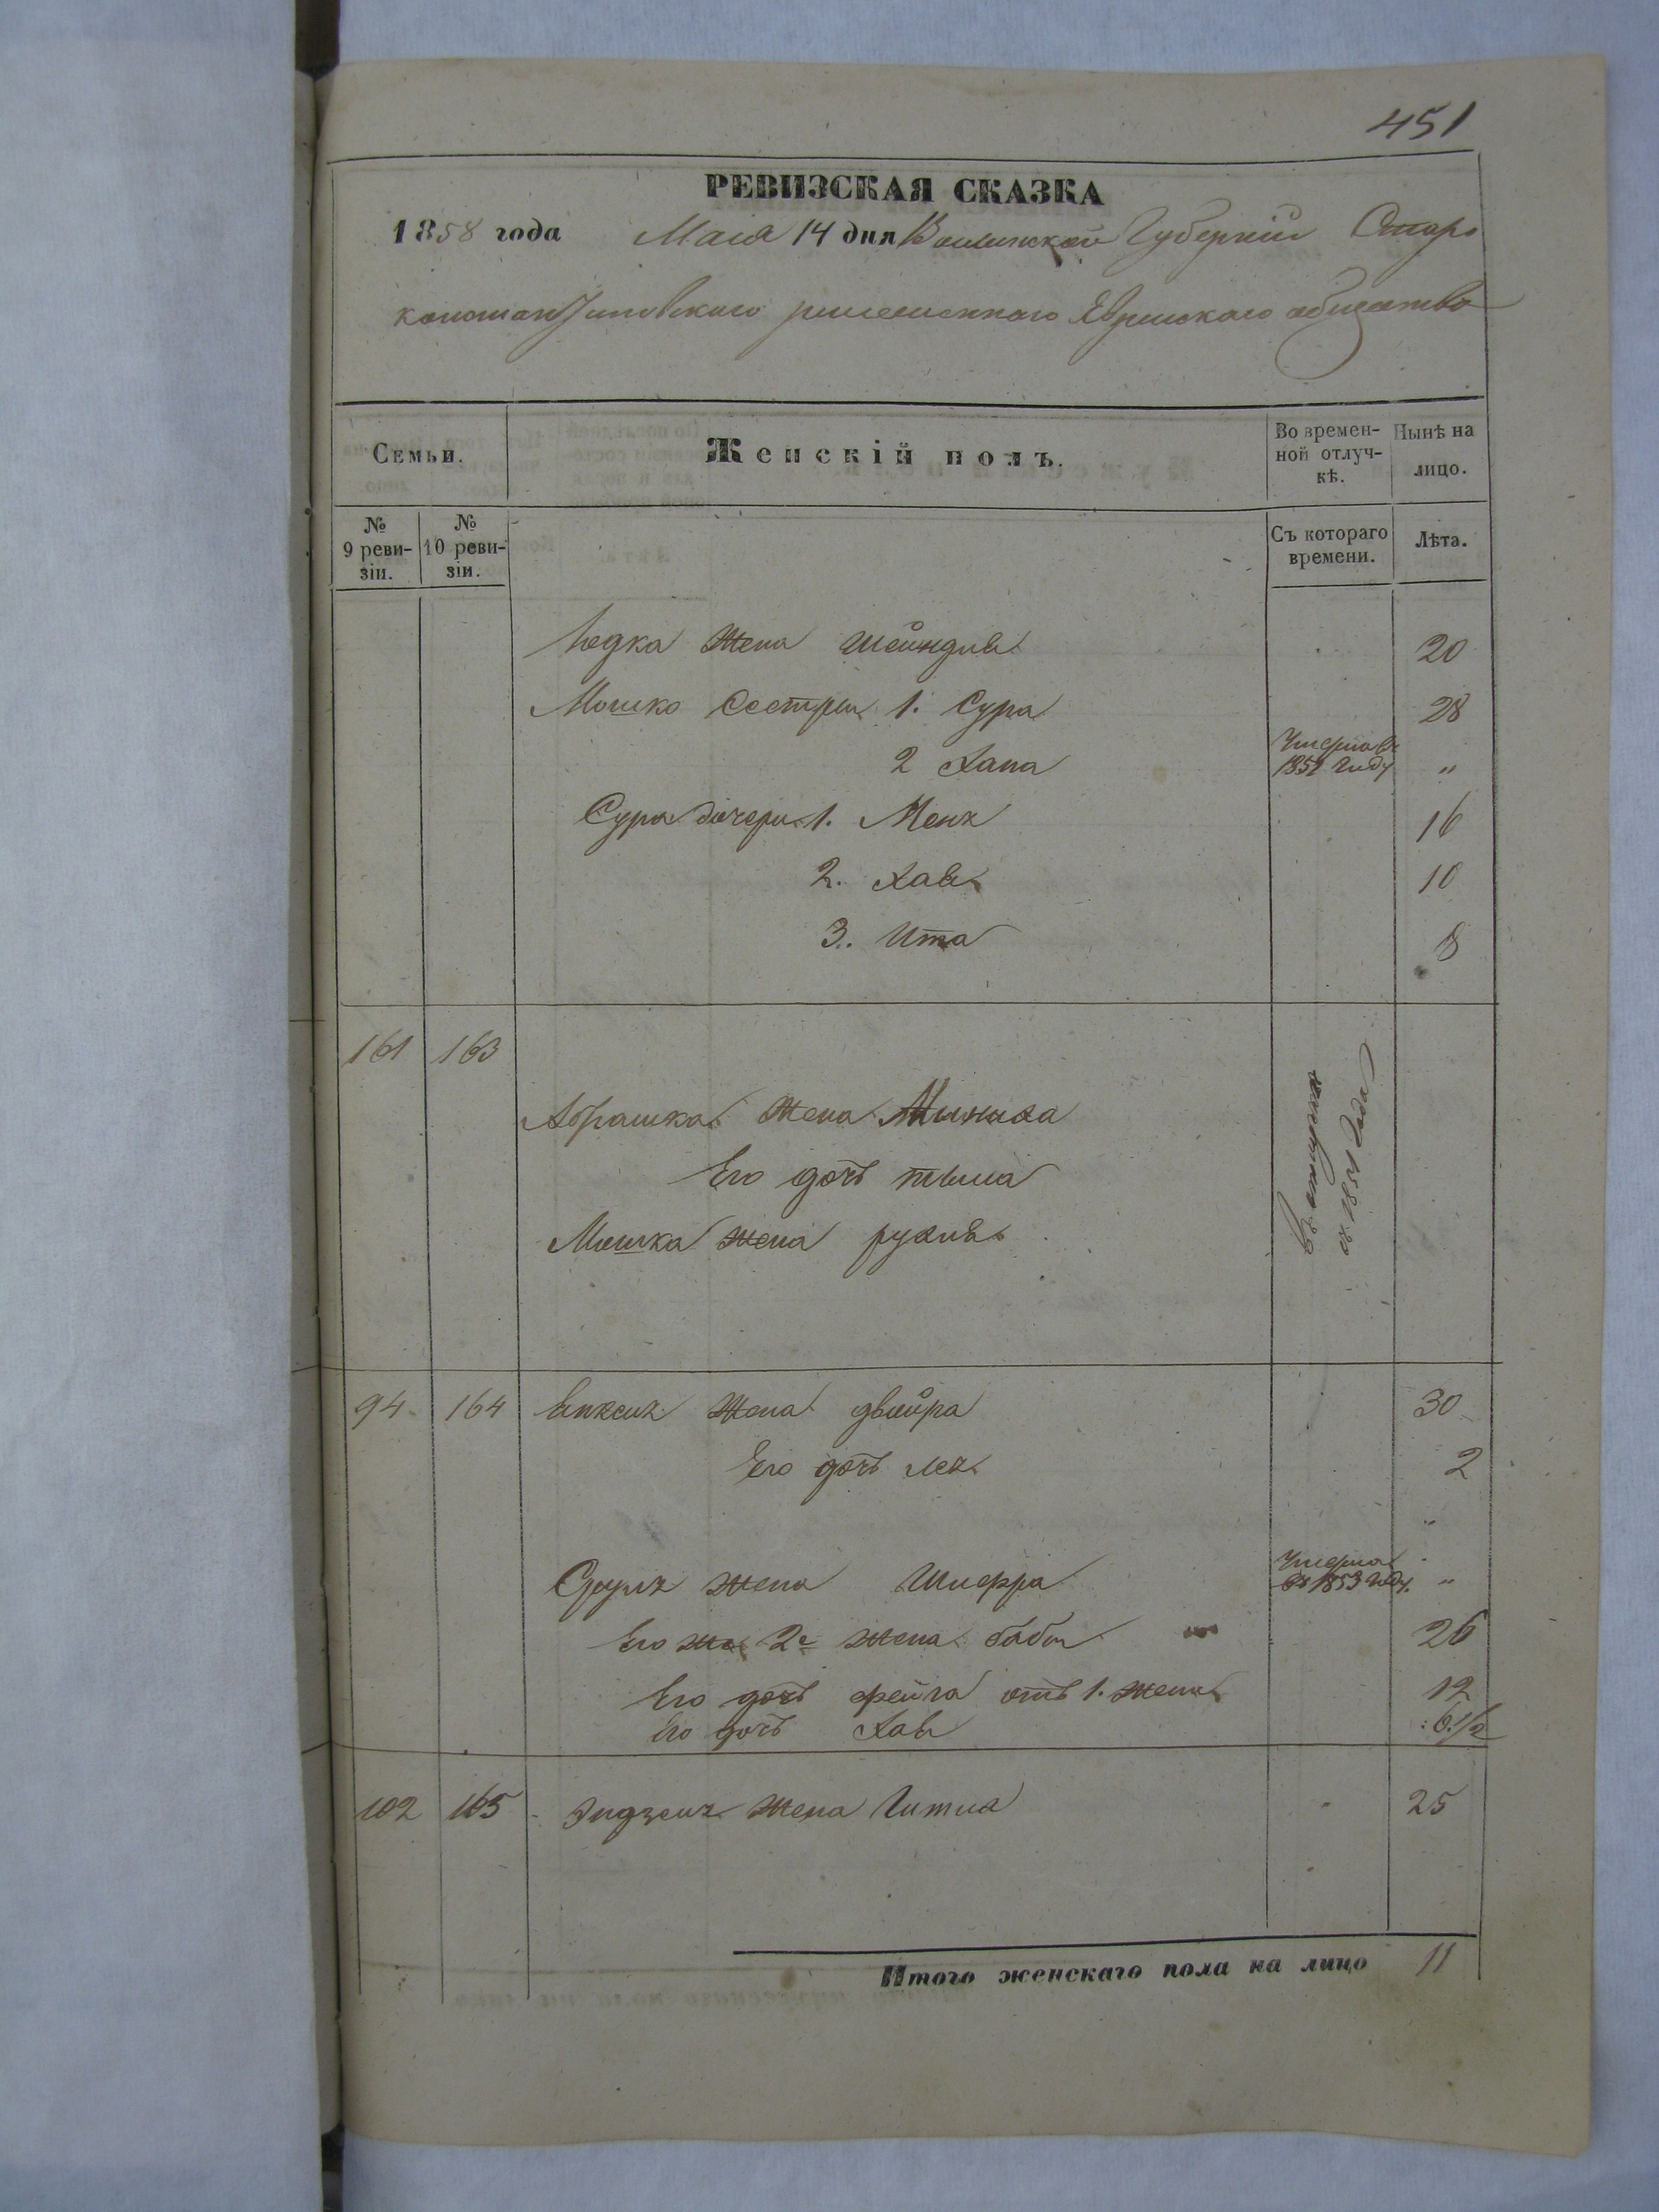 451
РЕВИЗСКАЯ СКАЗКА
1858 года Маія 14 дня Волынской Губерніи Старо
константиновского ремесленнаго Еврейскаго общества
Семьи.
Женскій полъ.
Во времен-
ной отлуч-
кѣ.
Нынѣ на
лицо.
№
9 реви-
зіи.
№
10 реви-
зіи.
Съ котораго
времени.
Лѣта.
Юдка жена Шейндля 20
Мошко Сестры 1. Сура 28
2 Хана Умерла въ
185 году "
Сура дочери 1. Меня 16
2. Хава 10
3. Ита 8
161 163
Абрашка жена
Его дочъ
Мошка жена рухля
въ отлучкѣ
съ 1851 Года
94 164 жена двойра 30
Его дочъ лея 2
"
Сруля жена Шифра Умерла
въ 1853 году. "
Его 2е жена баба 26
Его дочъ фейга отъ 1. жены 12
Его дочъ Хава 6. 1/2
102 165 жена Гитля 25
Итого женскаго пола на лицо 11